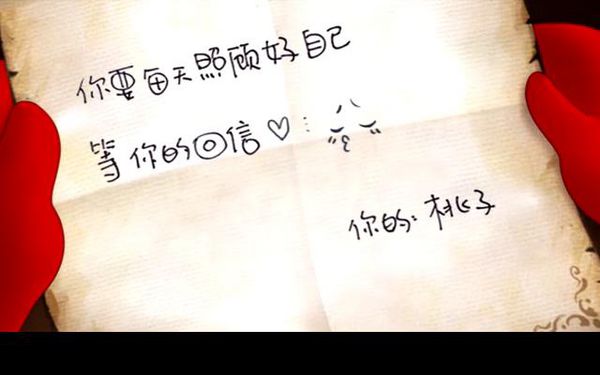 你要每天照顾好自己
等你的回信♡:
你的:桃子